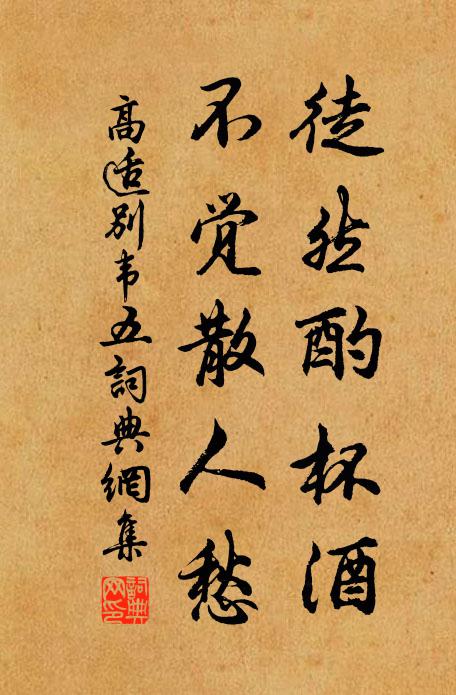 徒然酌杯酒
不觉散人愁
高适别韦五詞典網集
詞典网印